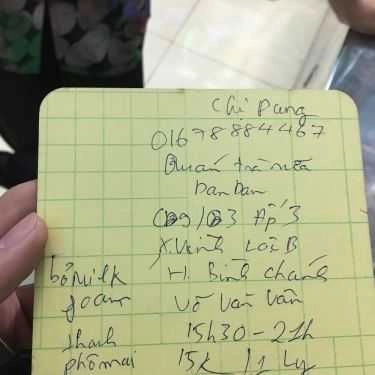 Chị Dung
01678884467
Quán trà sữa
DanDan
Ấp 3
X. Vĩnh Lộc B
bỏ milk H. Bình Chánh
foam Võ Văn Vân
thanh 15h30 - 21h
phô mai 15k / 1 Ly